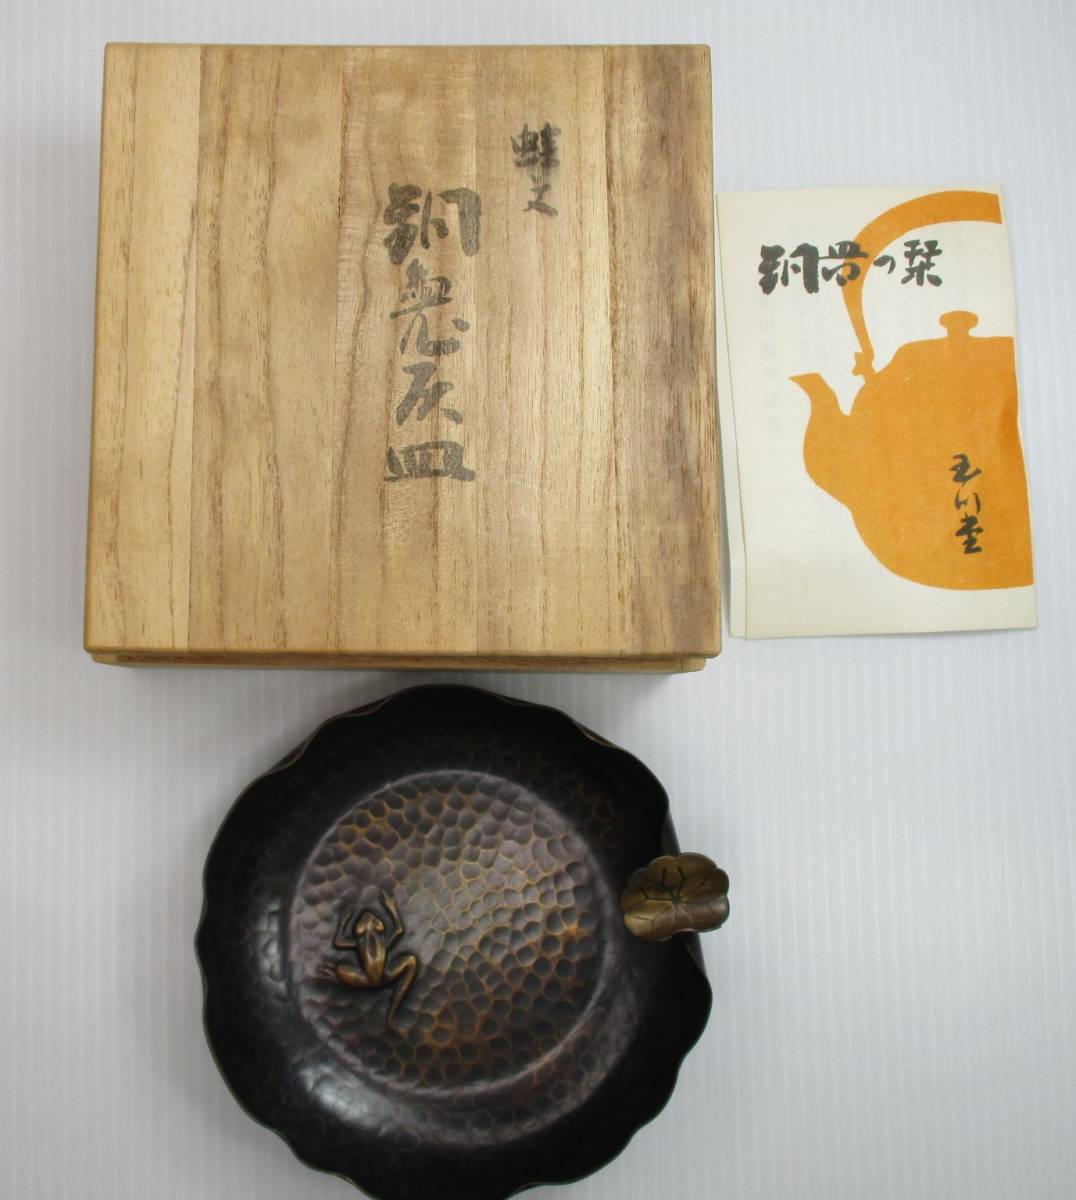 蛙文
銅無心灰皿
銅器の栞
玉川堂